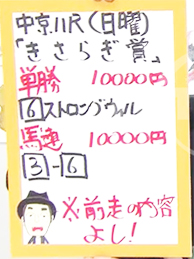 中京11R（日曜）
「きさらぎ賞」
単勝 10000円
6 ストロングウィル
馬連 10000円
3-6
※前走の内容
よし！